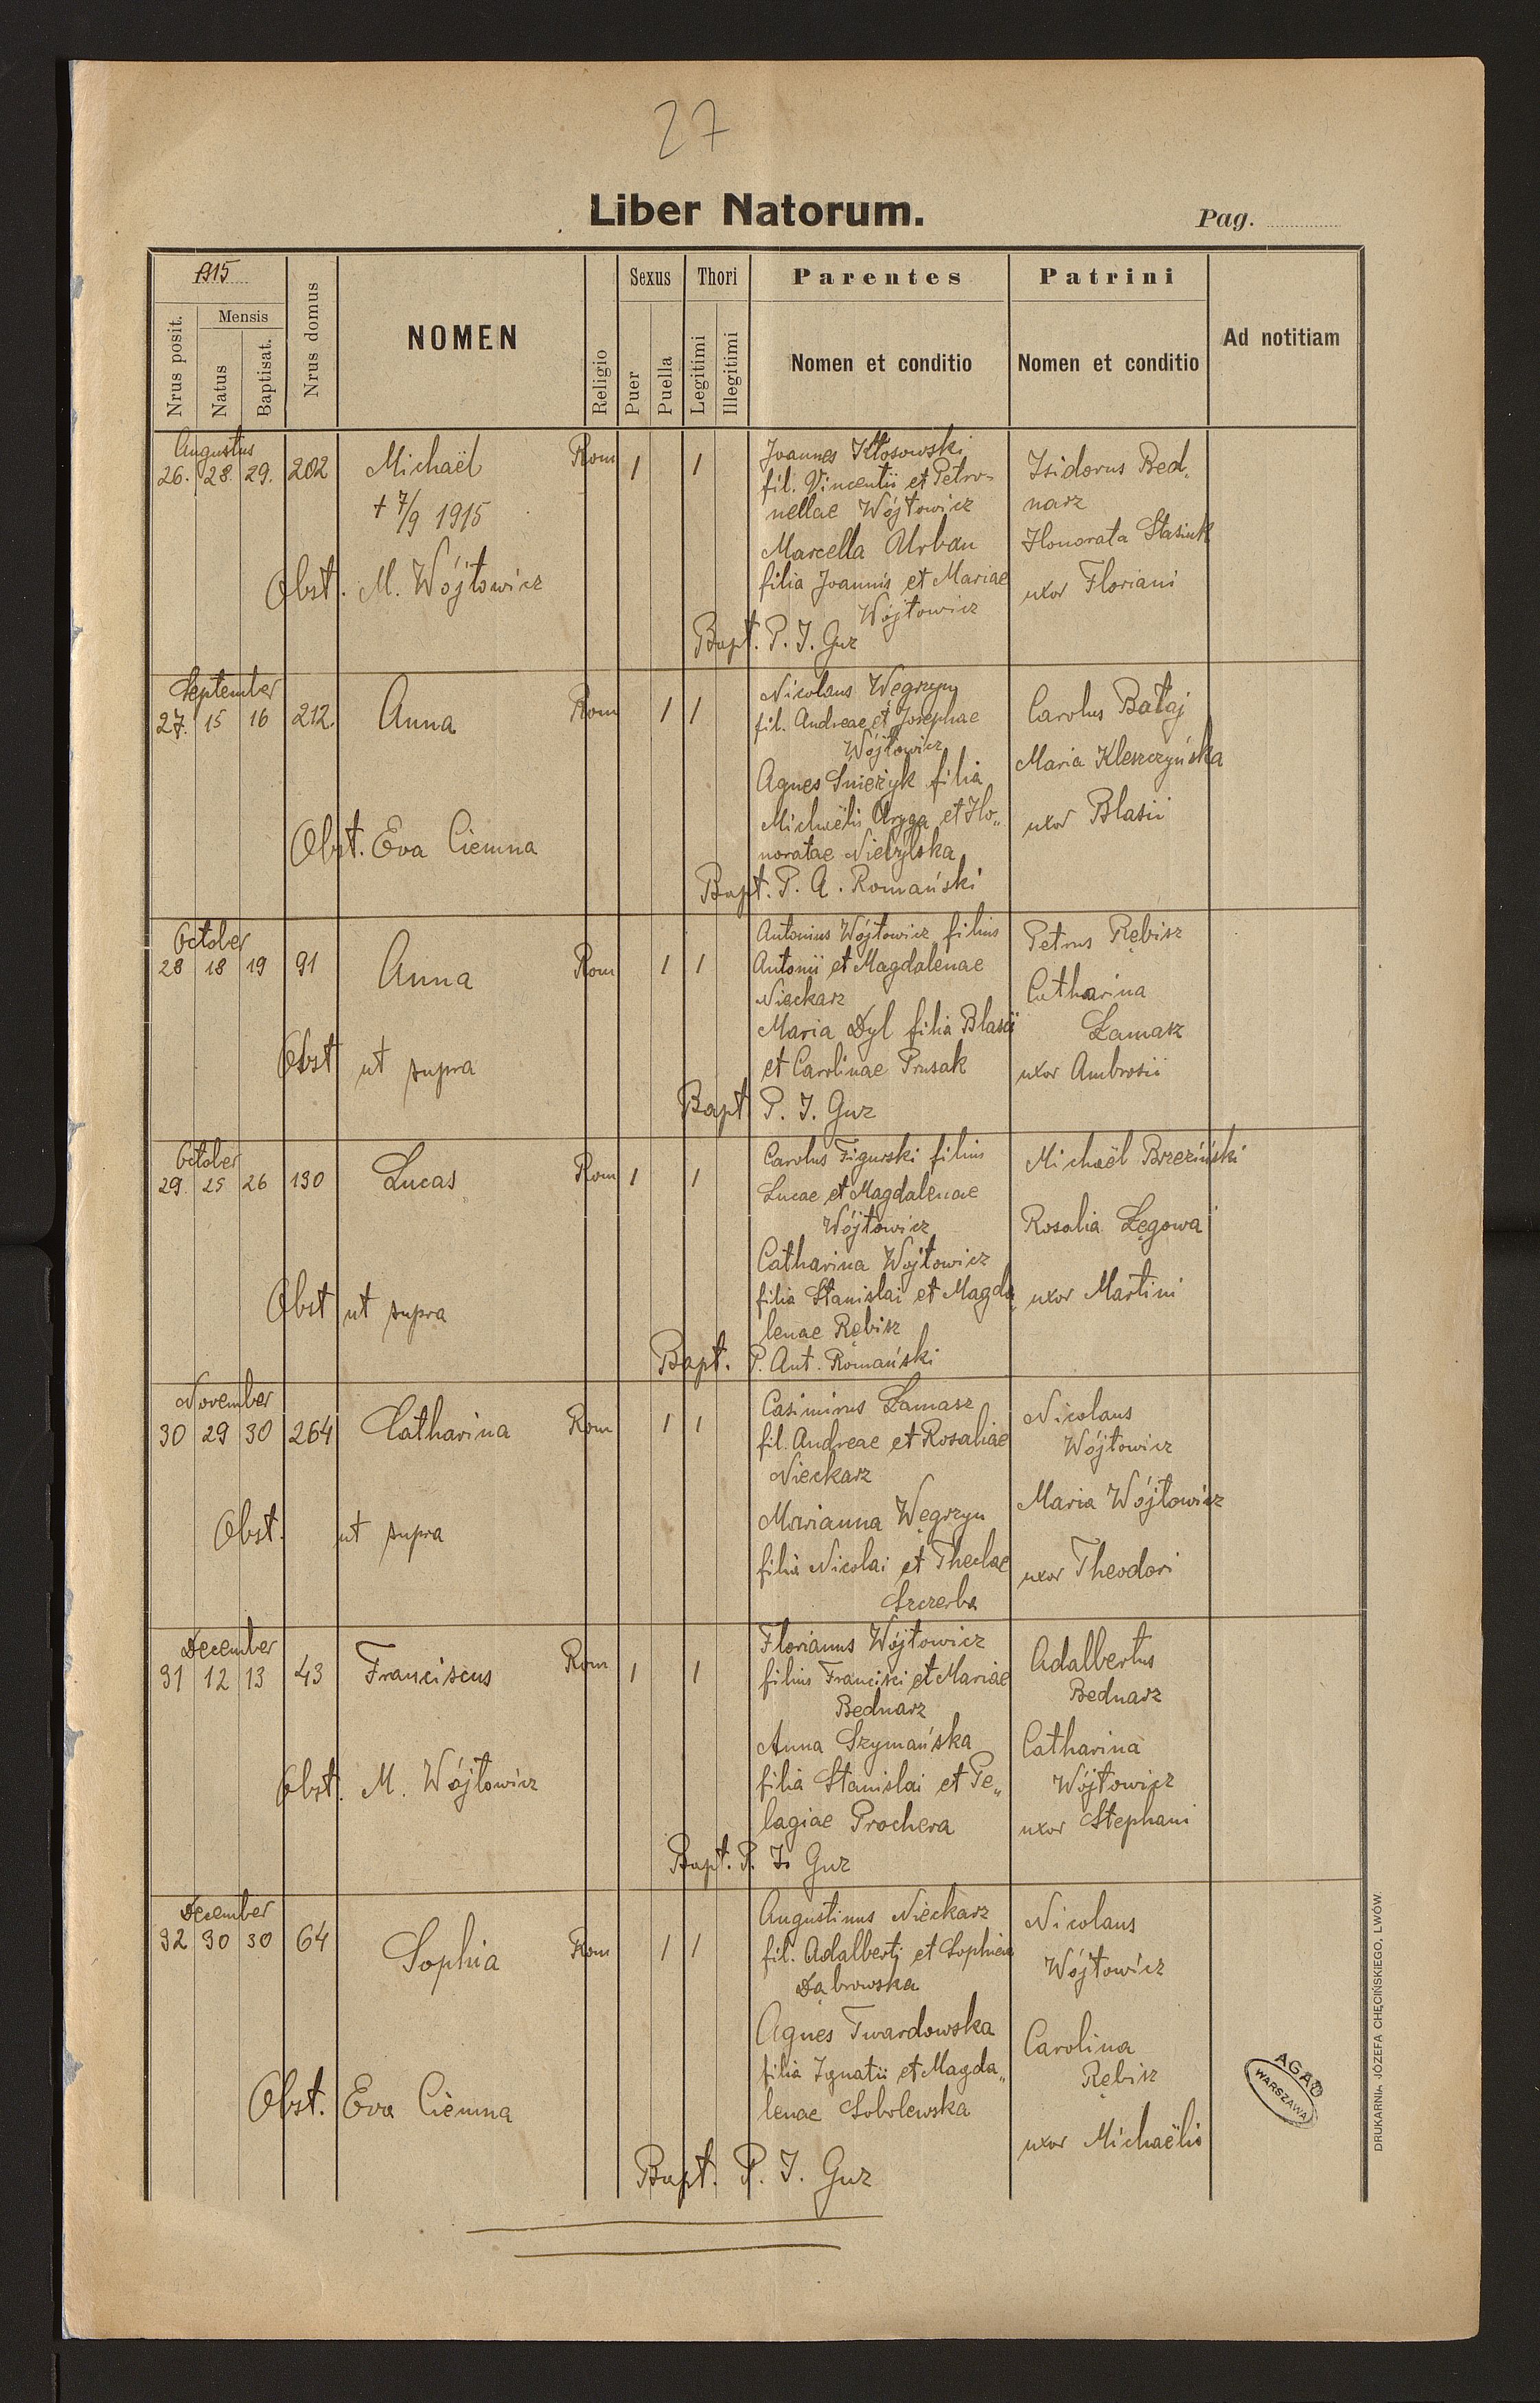 27
Liber Natorum.
Pag.
1915
Nrus posit.
Mensis
Natus
Baptisat.
Nrus domus
NOMEN
Religio
Sexus
Puer
Puella
Thori
Legitimi
Illegitimi
Parentes
Nomen et conditio
Patrini
Nomen et conditio
Ad notitiam
Augustus
26. 28. 29. 202 Michaël Rom 1 1
+ 7/9 1915
Obst. M. Wójtowicz
Joannes Kłosowski
fil. Vincentii et Petro-
nellae Wójtowicz
Marcella Urban
filia Joannis et Mariae
Wójtowicz
Bapt. P. J. Guz
Isidorus Bed„
narz
Honorata Stasiuk
uxor Floriani
September
27. 15 16 212. Anna Rom 1 1
Obst. Eva Ciemna
Nicolaus Węgrzyn
fil. Andreae et Josephae
Wójtowicz
Agnes Snieżyk filia
Michaëlis et Ho„
noratae Niebylska
Bapt. P. A. Romański
Carolus Bałaj
Maria Kleszczyńska
uxor Blasii
October
28 18 19 91 Anna Rom 1 1
Obst ut supra
Antonius Wójtowicz filius
Antonii et Magdalenae
Nieckarz
Maria Dyl filia Blasii
et Carolinae Prusak
Bapt P. J. Guz
Petrus Rębisz
Catharina
Łamasz
uxor Ambrosii
October
29. 25 26 130 Lucas Rom 1 1
Obst ut supra
Carolus Figurski filius
Lucae et Magdalenae
Wójtowicz
Catharina Wójtowicz
filia Stanislai et Magda„
lenae Rębisz
Bapt. P. Ant. Romański
Michaël Brzeziński
Rosalia Łęgowa
uxor Martini
November
30 29 30 264 Catharina Rom 1 1
Obst. ut supra
Casimirus Łamasz
fil. Andreae et Rosaliae
Nieckarz
Marianna Węgrzyn
filia Nicolai et Theclae
Szczerba
Nicolaus
Wójtowicz
Maria Wójtowicz
uxor Theodori
December
31 12 13 43 Franciscus Rom 1 1
Obst. M. Wójtowicz
Florianus Wójtowicz
filius Francisci et Mariae
Bednarz
Anna Szymańska
filia Stanislai et Pe„
lagiae Prochera
Bapt. P. J. Guz
Adalbertus
Bednarz
Catharina
Wójtowicz
uxor Stephani
December
32 30 30 64 Sophia Rom 1 1
Obst. Eva Ciemna
Augustinus Nieckarz
fil. Adalberti et Sophiae
Dąbrowska
Agnes Twardowska
filia Ignatii et Magda„
lenae Sobolewska
Bapt. P. J. Guz
Nicolaus
Wójtowicz
Carolina
Rębisz
uxor Michaëlis
AGAD
WARSZAWA
DRUKARNIA JÓZEFA CHĘCIŃSKIEGO, LWÓW.